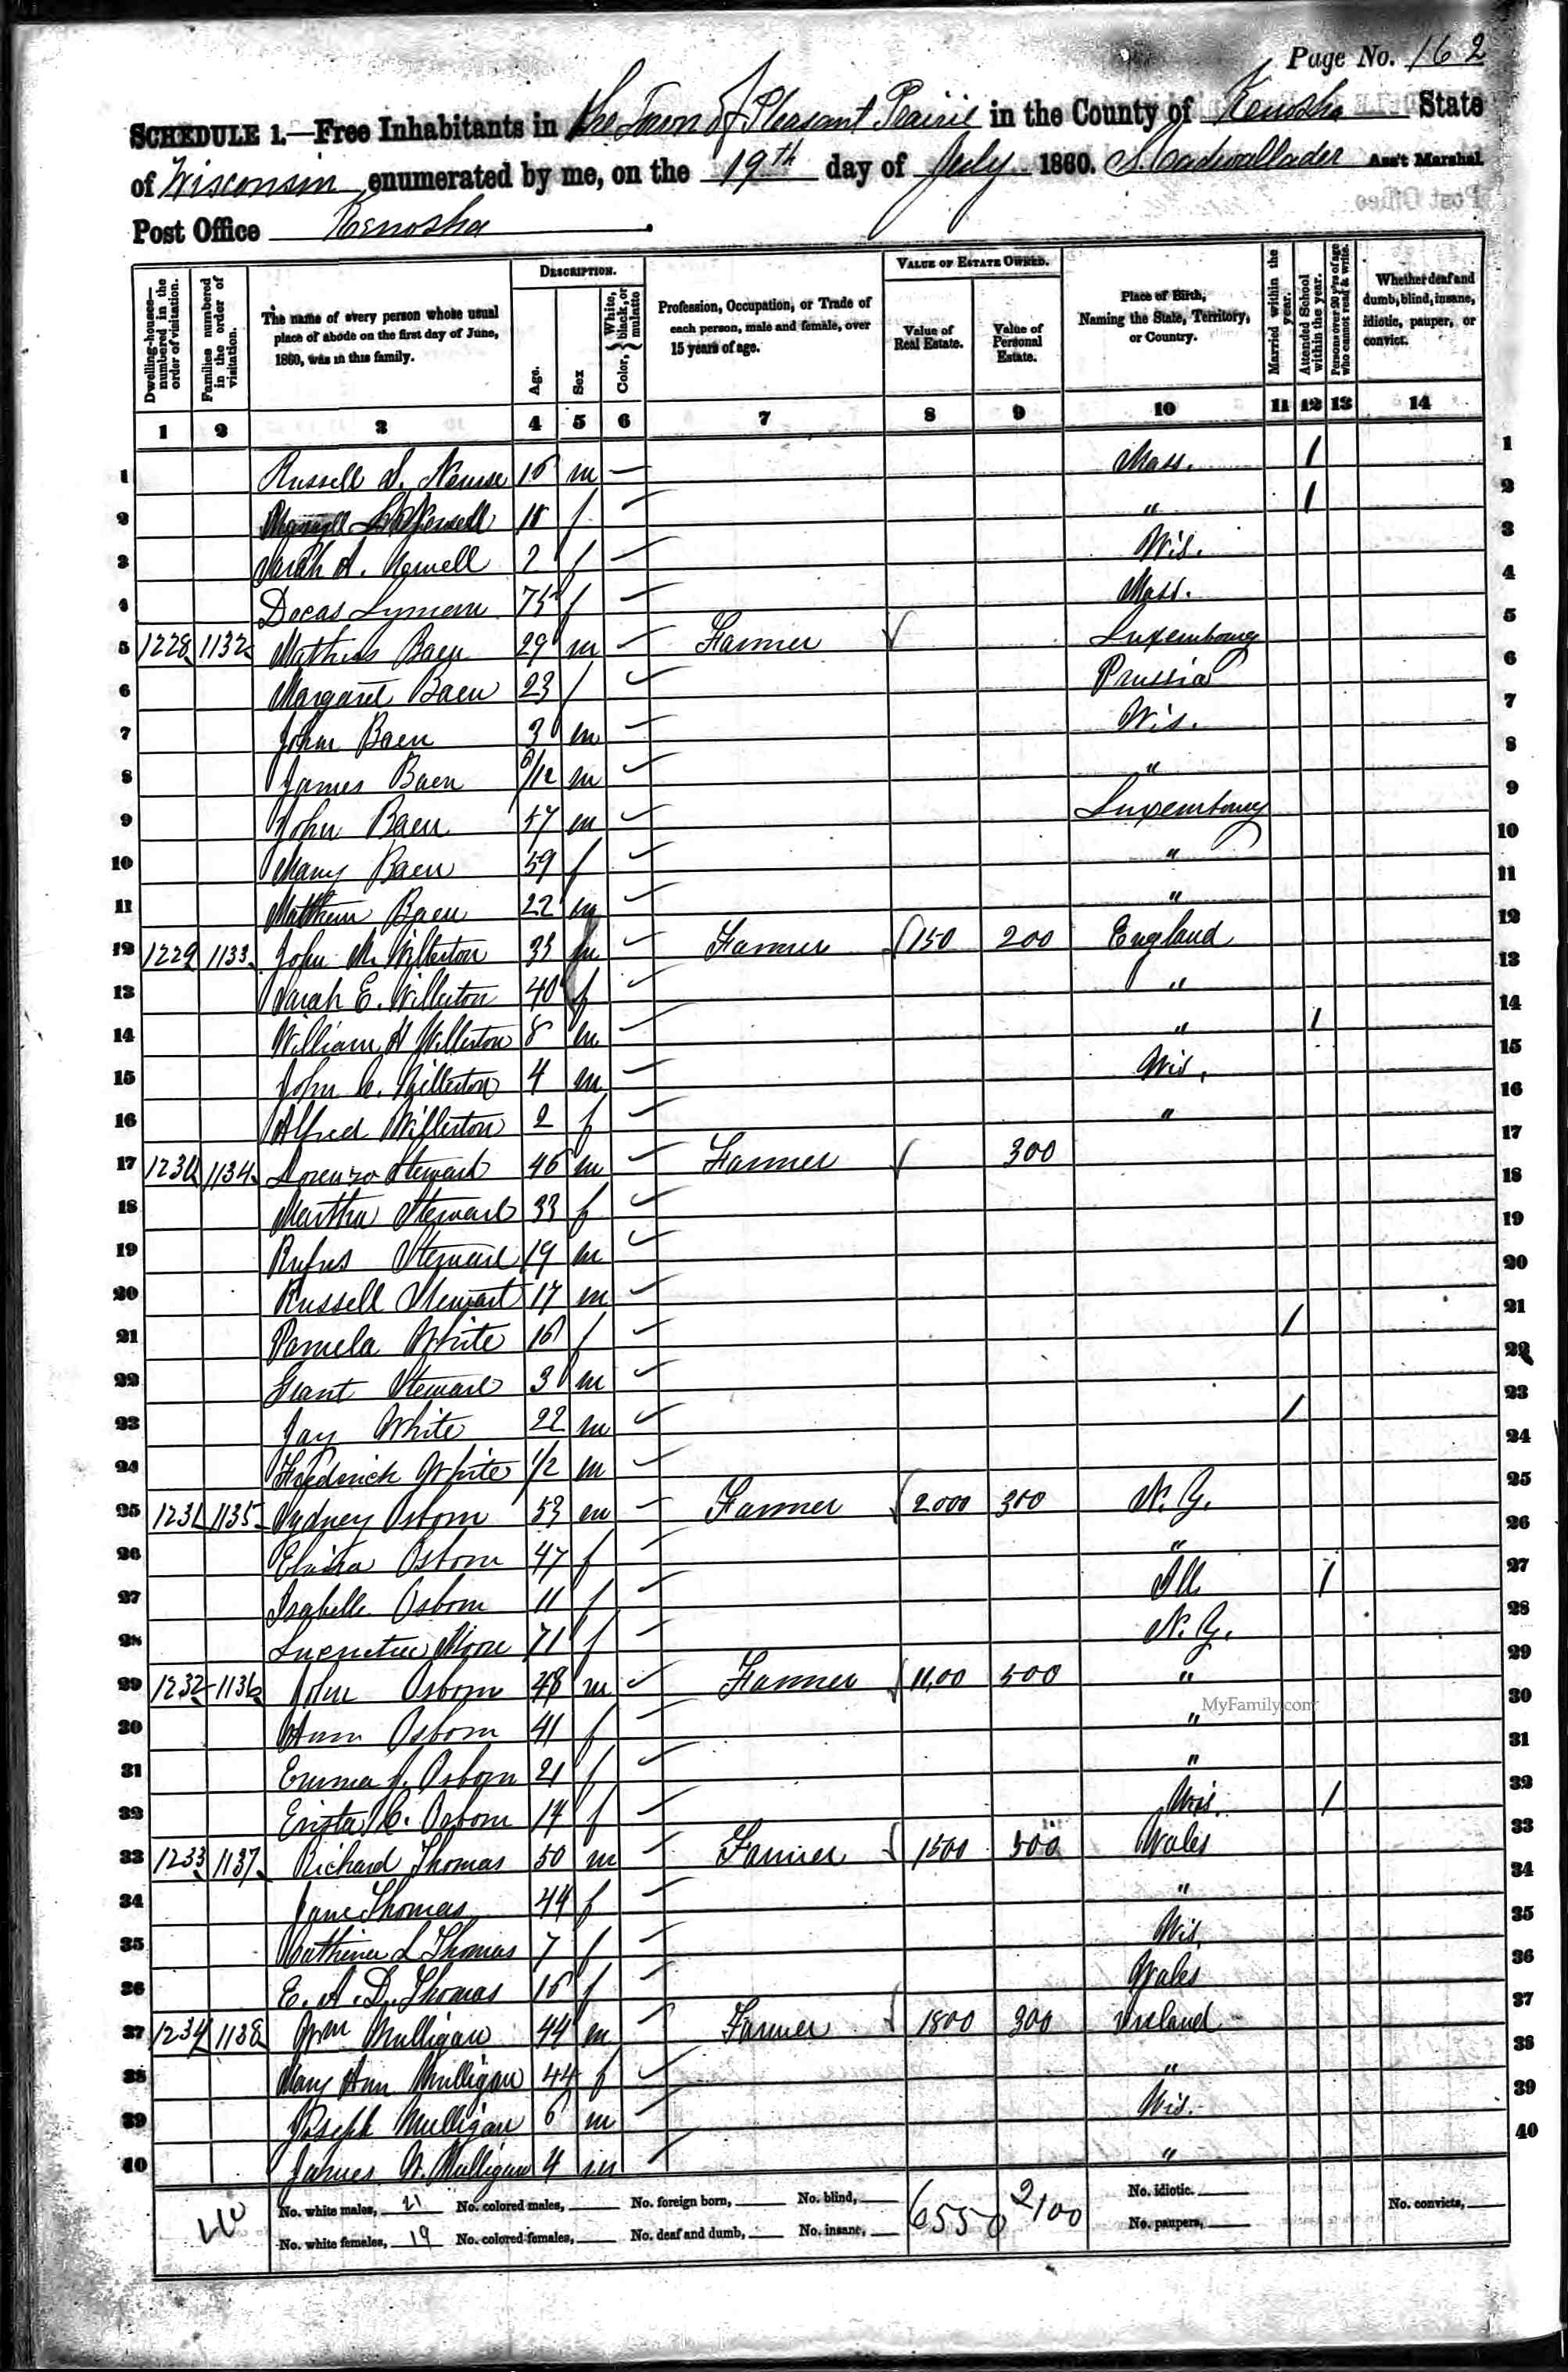 Page No. 162
SCHEDULE 1.—Free Inhabitants in the Town of Pleasant Prairie in the County of Kenosha State
of Wisconsin enumerated by me, on the 19th day of July 1860. S. Cadwallader Ass't Marshal.
Post Office Kenosha
Dwelling-houses—numbered in the order of visitation.
Families numbered in the order of visitation.
The name of every person whose usual place of abode on the first day of June, 1860, was in this family.
DESCRIPTION.
Age.
Sex
Color, White, black, or mulatto
Profession, Occupation, or Trade of each person, male and female, over 15 years of age.
VALUE OF ESTATE OWNED.
Value of Real Estate.
Value of Personal Estate.
Place of Birth, Naming the State, Territory, or Country.
Married within the year.
Attended School within the year.
Persons over 20 y'rs of age who cannot read & write.
Whether deaf and dumb, blind, insane, idiotic, pauper, or convict.
1 2 3 4 5 6 7 8 9 10 11 12 13 14
1 Russell S. m Mass. / 1
2 f " / 2
3 Sarah A. Newell 2 f Wis. 3
4 Docas Lyman 75 f Mass. 4
5 1228 1132 Mathias Baen 29 m Farmer Luxembourg 5
6 Margaret Baen 23 f Prussia 6
7 John Baen 3 m Wis. 7
8 James Baen /12 m " 8
9 John Baen 57 m Luxembourg 9
10 Mary Baen 59 f " 10
11 Matthew Baen 22 m " 11
12 1229 1133 John M. Willerton 33 m Farmer 150 200 England 12
13 Sarah E. Willerton 40 f " 13
14 William H Willerton 8 m " / 14
15 John C. Willerton 4 m Wis. 15
16 Alfred Willerton 2 f " 16
17 1230 1134 Lorenzo Stewart 46 m Farmer 300 17
18 Martha Stewart 33 f 18
19 Rufus Stewart 19 m 19
20 Russell Stewart 17 m 20
21 Pamela White 16 f / 21
22 Grant Stewart 3 m 22
23 Jay White 22 m / 23
24 Fredrick White 1/2 m 24
25 1231 1135 Sydney Osborn 53 m Farmer 2000 300 N. Y. 25
26 Osborn 47 f " 26
27 Isabelle Osborn 11 f Ill / 27
28 Lucretia 71 f N. Y. 28
29 1232 1136 John Osborn 48 m Farmer 1100 500 " 29
30 Ann Osborn 41 f " 30
31 Emma J. Osborn 21 f " 31
32 C. Osborn 14 f Wis. / 32
33 1233 1137 Richard Thomas 50 m Farmer 1500 500 Wales 33
34 Jane Thomas 44 f " 34
35 Catherine L Thomas 7 f Wis. 35
36 E. A. D. Thomas 16 f Wales 36
37 1234 1138 Wm Mulligan 44 m Farmer 1800 300 Ireland 37
38 Mary Ann Mulligan 44 f " 38
39 Joseph Mulligan 6 m Wis. 39
40 James W. Mulligan 4 m " 40
MyFamily.com
No. white males, 21 No. colored males, No. foreign born, No. blind, 6550 2100 No. idiotic. No. convicts,
No. white females, 19 No. colored females, No. deaf and dumb, No. insane, No. paupers,